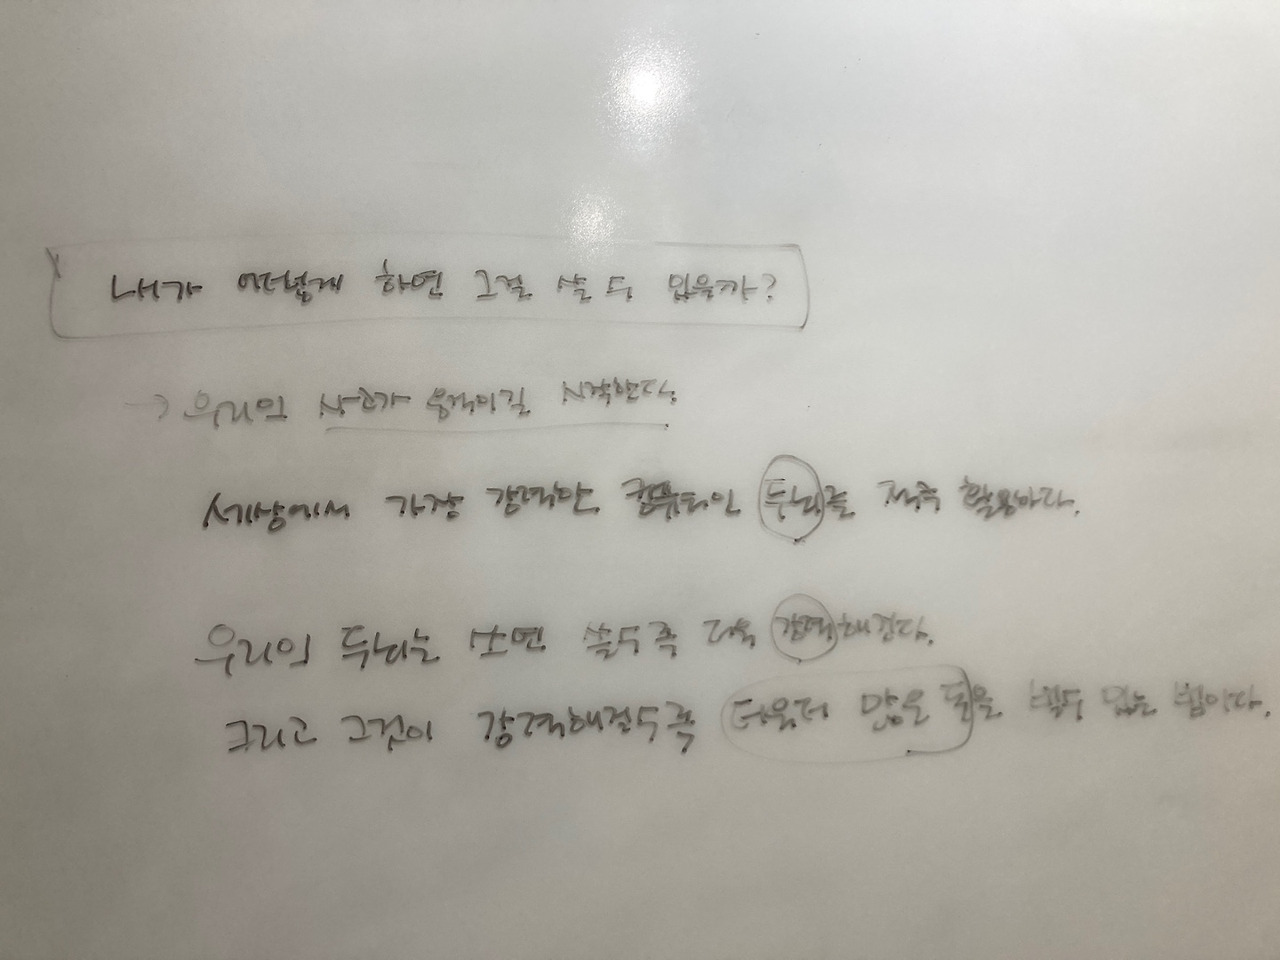 내가 어떻게 하면 그걸 쓸 수 있을까?
→ 우리의 사고가 움직이길 시작한다.
세상에서 가장 강력한 컴퓨터인 두뇌를 적극 활용하다.
우리의 두뇌는 쓰면 쓸수록 더욱 강력해진다.
그리고 그것이 강력해질수록 더욱더 많은 돈을 벌수 있는 법이다.